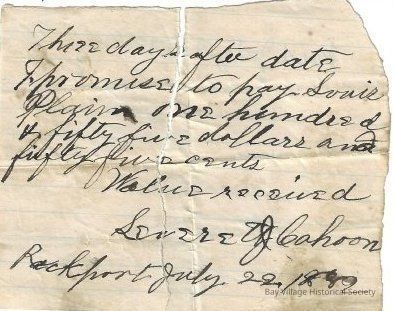 Three days after date
I promise to pay Louis
Plain one hundred
& fifty five dollars and
fifty five cents
Value received
Leverett J Cahoon
Rockport July 22, 18
Bay Village Historical Society